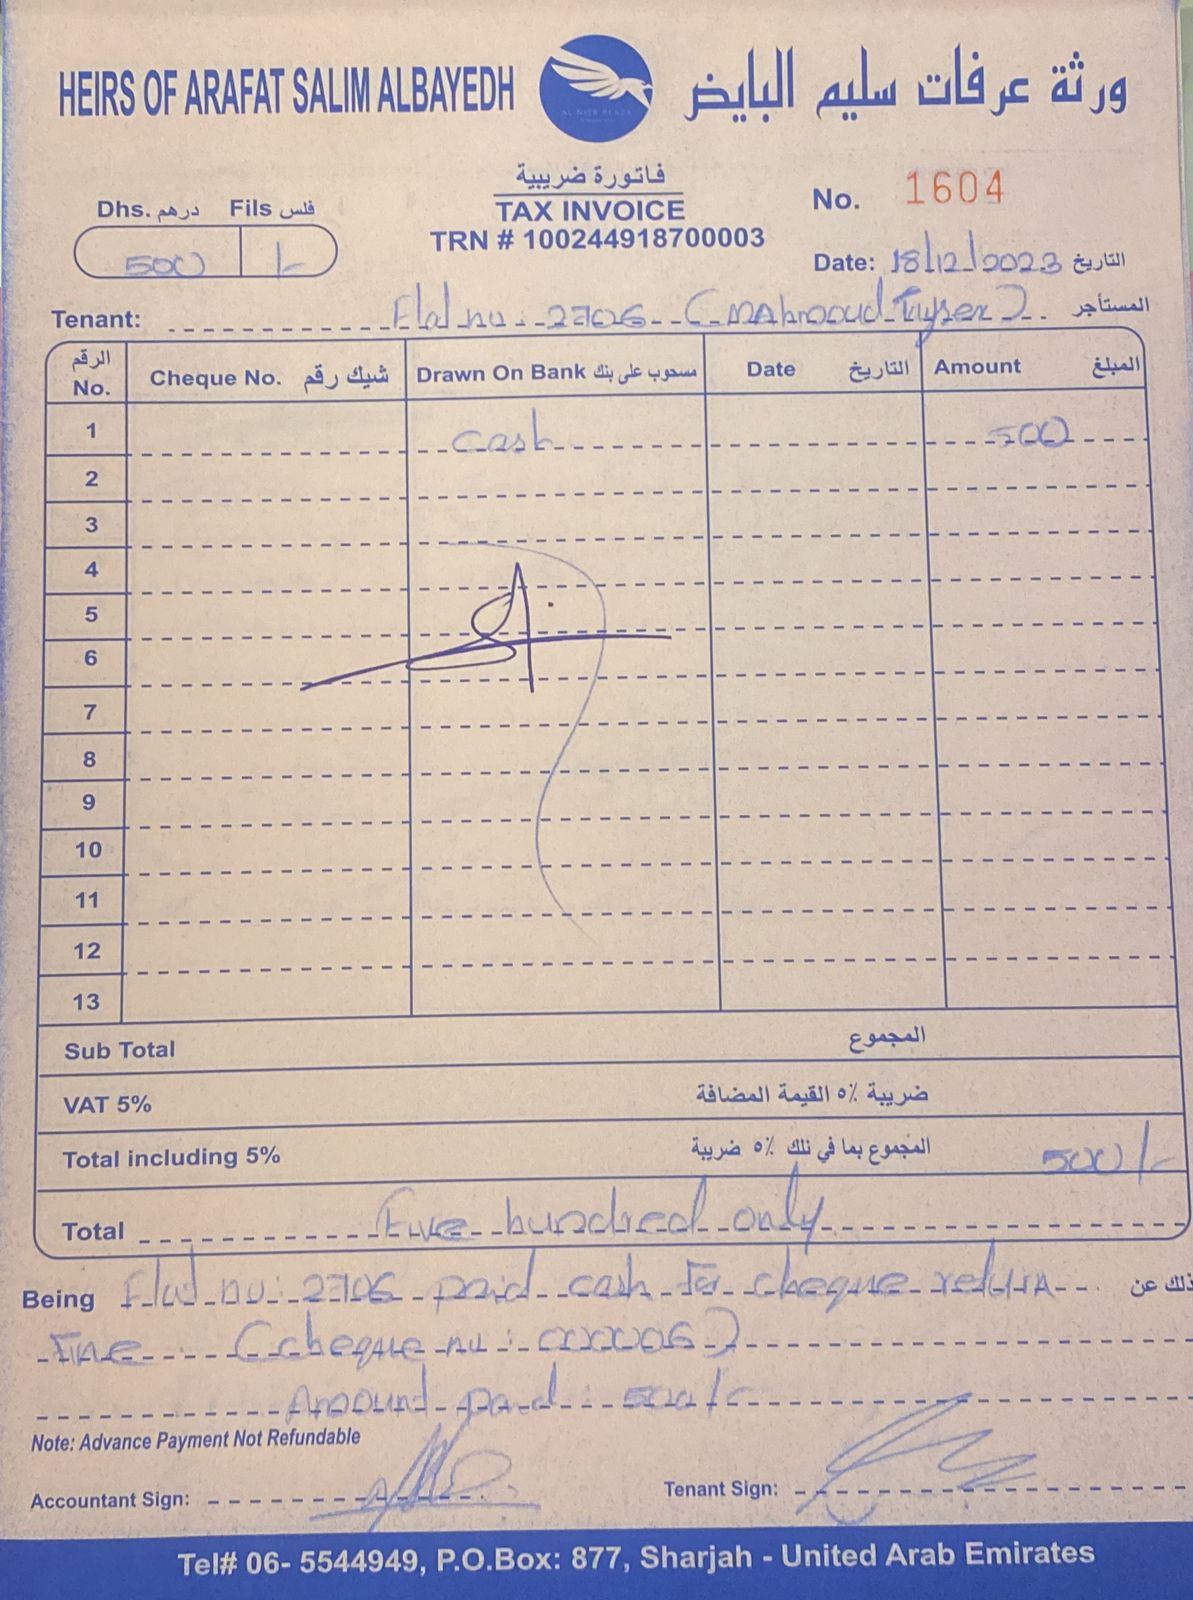 HEIRS OF ARAFAT SALIM ALBAYEDH
AL NISR PLAZA
ورثة عرفات سليم البايض
فاتورة ضريبية
TAX INVOICE
TRN # 100244918700003
No. 1604
Dhs. درهم Fils فلس
500 /-
Date: 18/12/2023 التاريخ
Tenant: Flat no: 2706 (Mahmoud Tayser) المستأجر
الرقم No. Cheque No. شيك رقم Drawn On Bank مسحوب على بنك Date التاريخ Amount المبلغ
1 Cash 500
2
3
4
5
6
7
8
9
10
11
12
13
Sub Total المجموع
VAT 5% ضريبة ٥٪ القيمة المضافة
Total including 5% المجموع بما في ذلك ٥٪ ضريبة 500/-
Total Five hundred only
Being Flat no: 2706 paid cash for cheque return وذلك عن
Fine (cheque no: 000006)
Amount paid: 500/-
Note: Advance Payment Not Refundable
Accountant Sign: Tenant Sign:
Tel# 06- 5544949, P.O.Box: 877, Sharjah - United Arab Emirates